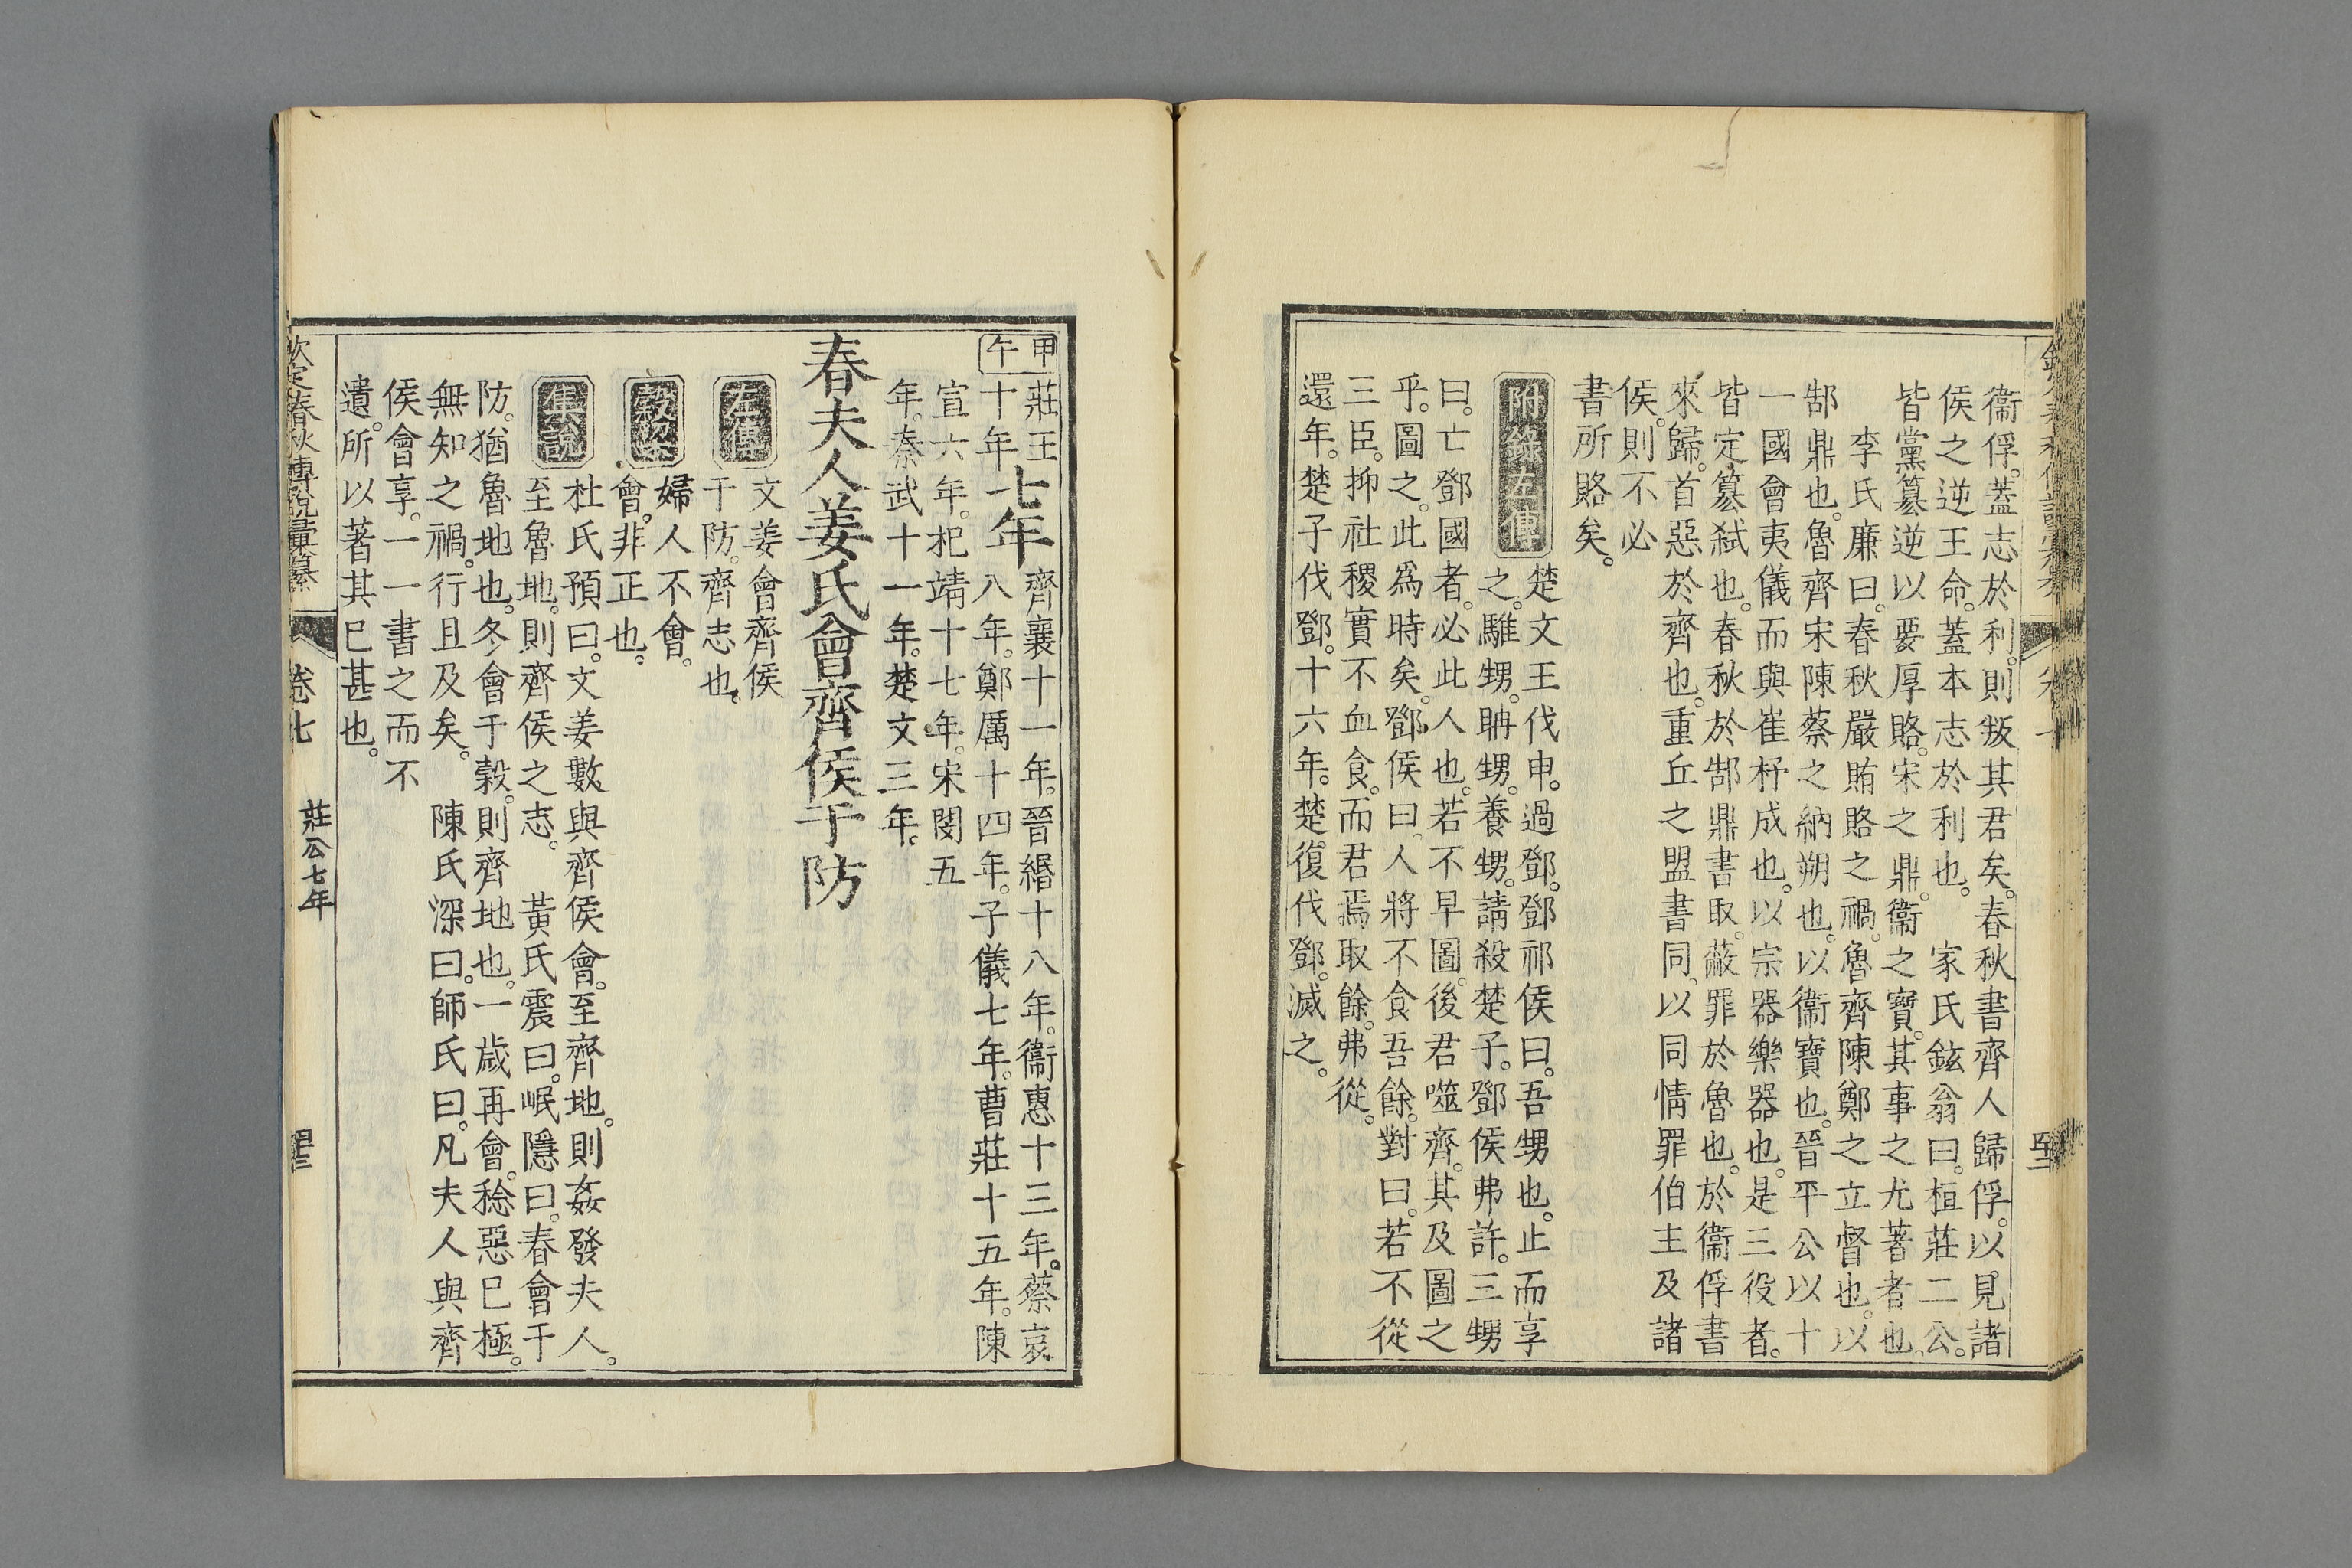 衞俘。蓋志於利。則叛其君矣。春秋書齊人歸俘。以見諸
侯之逆王命。蓋本志於利也。　家氏鉉翁曰。桓莊二公。
皆黨篡逆以要厚賂。宋之鼎。衞之寶。其事之尤著者也。
李氏廉曰。春秋嚴賄賂之禍。魯齊陳鄭之立督也。以
郜鼎也。魯齊宋陳蔡之納朔也。以衞寶也。晉平公以十
一國會夷儀而與崔杼成也。以宗器樂器也。是三役者。
皆定篡弑也。春秋於郜鼎書取。蔽罪於魯也。於衞俘書
來歸。首惡於齊也。重丘之盟書同。以同情罪伯主及諸
侯。則不必
書所賂矣。
附錄左傳
楚文王伐申。過鄧。鄧祁侯曰。吾甥也。止而享
之。騅甥。聃甥。養甥。請殺楚子。鄧侯弗許。三甥
曰。亡鄧國者。必此人也。若不早圖。後君噬齊。其及圖之
乎。圖之。此爲時矣。鄧侯曰。人將不食吾餘。對曰。若不從
三臣。抑社稷實不血食。而君焉取餘。弗從。
還年。楚子伐鄧。十六年。楚復伐鄧。滅之。
甲午
莊王十年
七年
齊襄十一年。晉緡十八年。衞惠十三年。蔡哀
八年。鄭厲十四年。子儀七年。曹莊十五年。陳
宣六年。杞靖十七年。宋閔五
年。秦武十一年。楚文三年。
春夫人姜氏會齊侯于防
左傳
文姜會齊侯
于防。齊志也。
穀梁
婦人不會。
會。非正也。
集說
杜氏預曰。文姜數與齊侯會。至齊地。則姦發夫人。
至魯地。則齊侯之志。　黃氏震曰。岷隱曰。春會于
防。猶魯地也。冬會于穀。則齊地也。一歲再會。稔惡已極。
無知之禍。行且及矣。　陳氏深曰。師氏曰。凡夫人與齊
侯會享。一一書之而不
遺。所以著其已甚也。
欽定春秋傳說彙纂
卷七
莊公七年